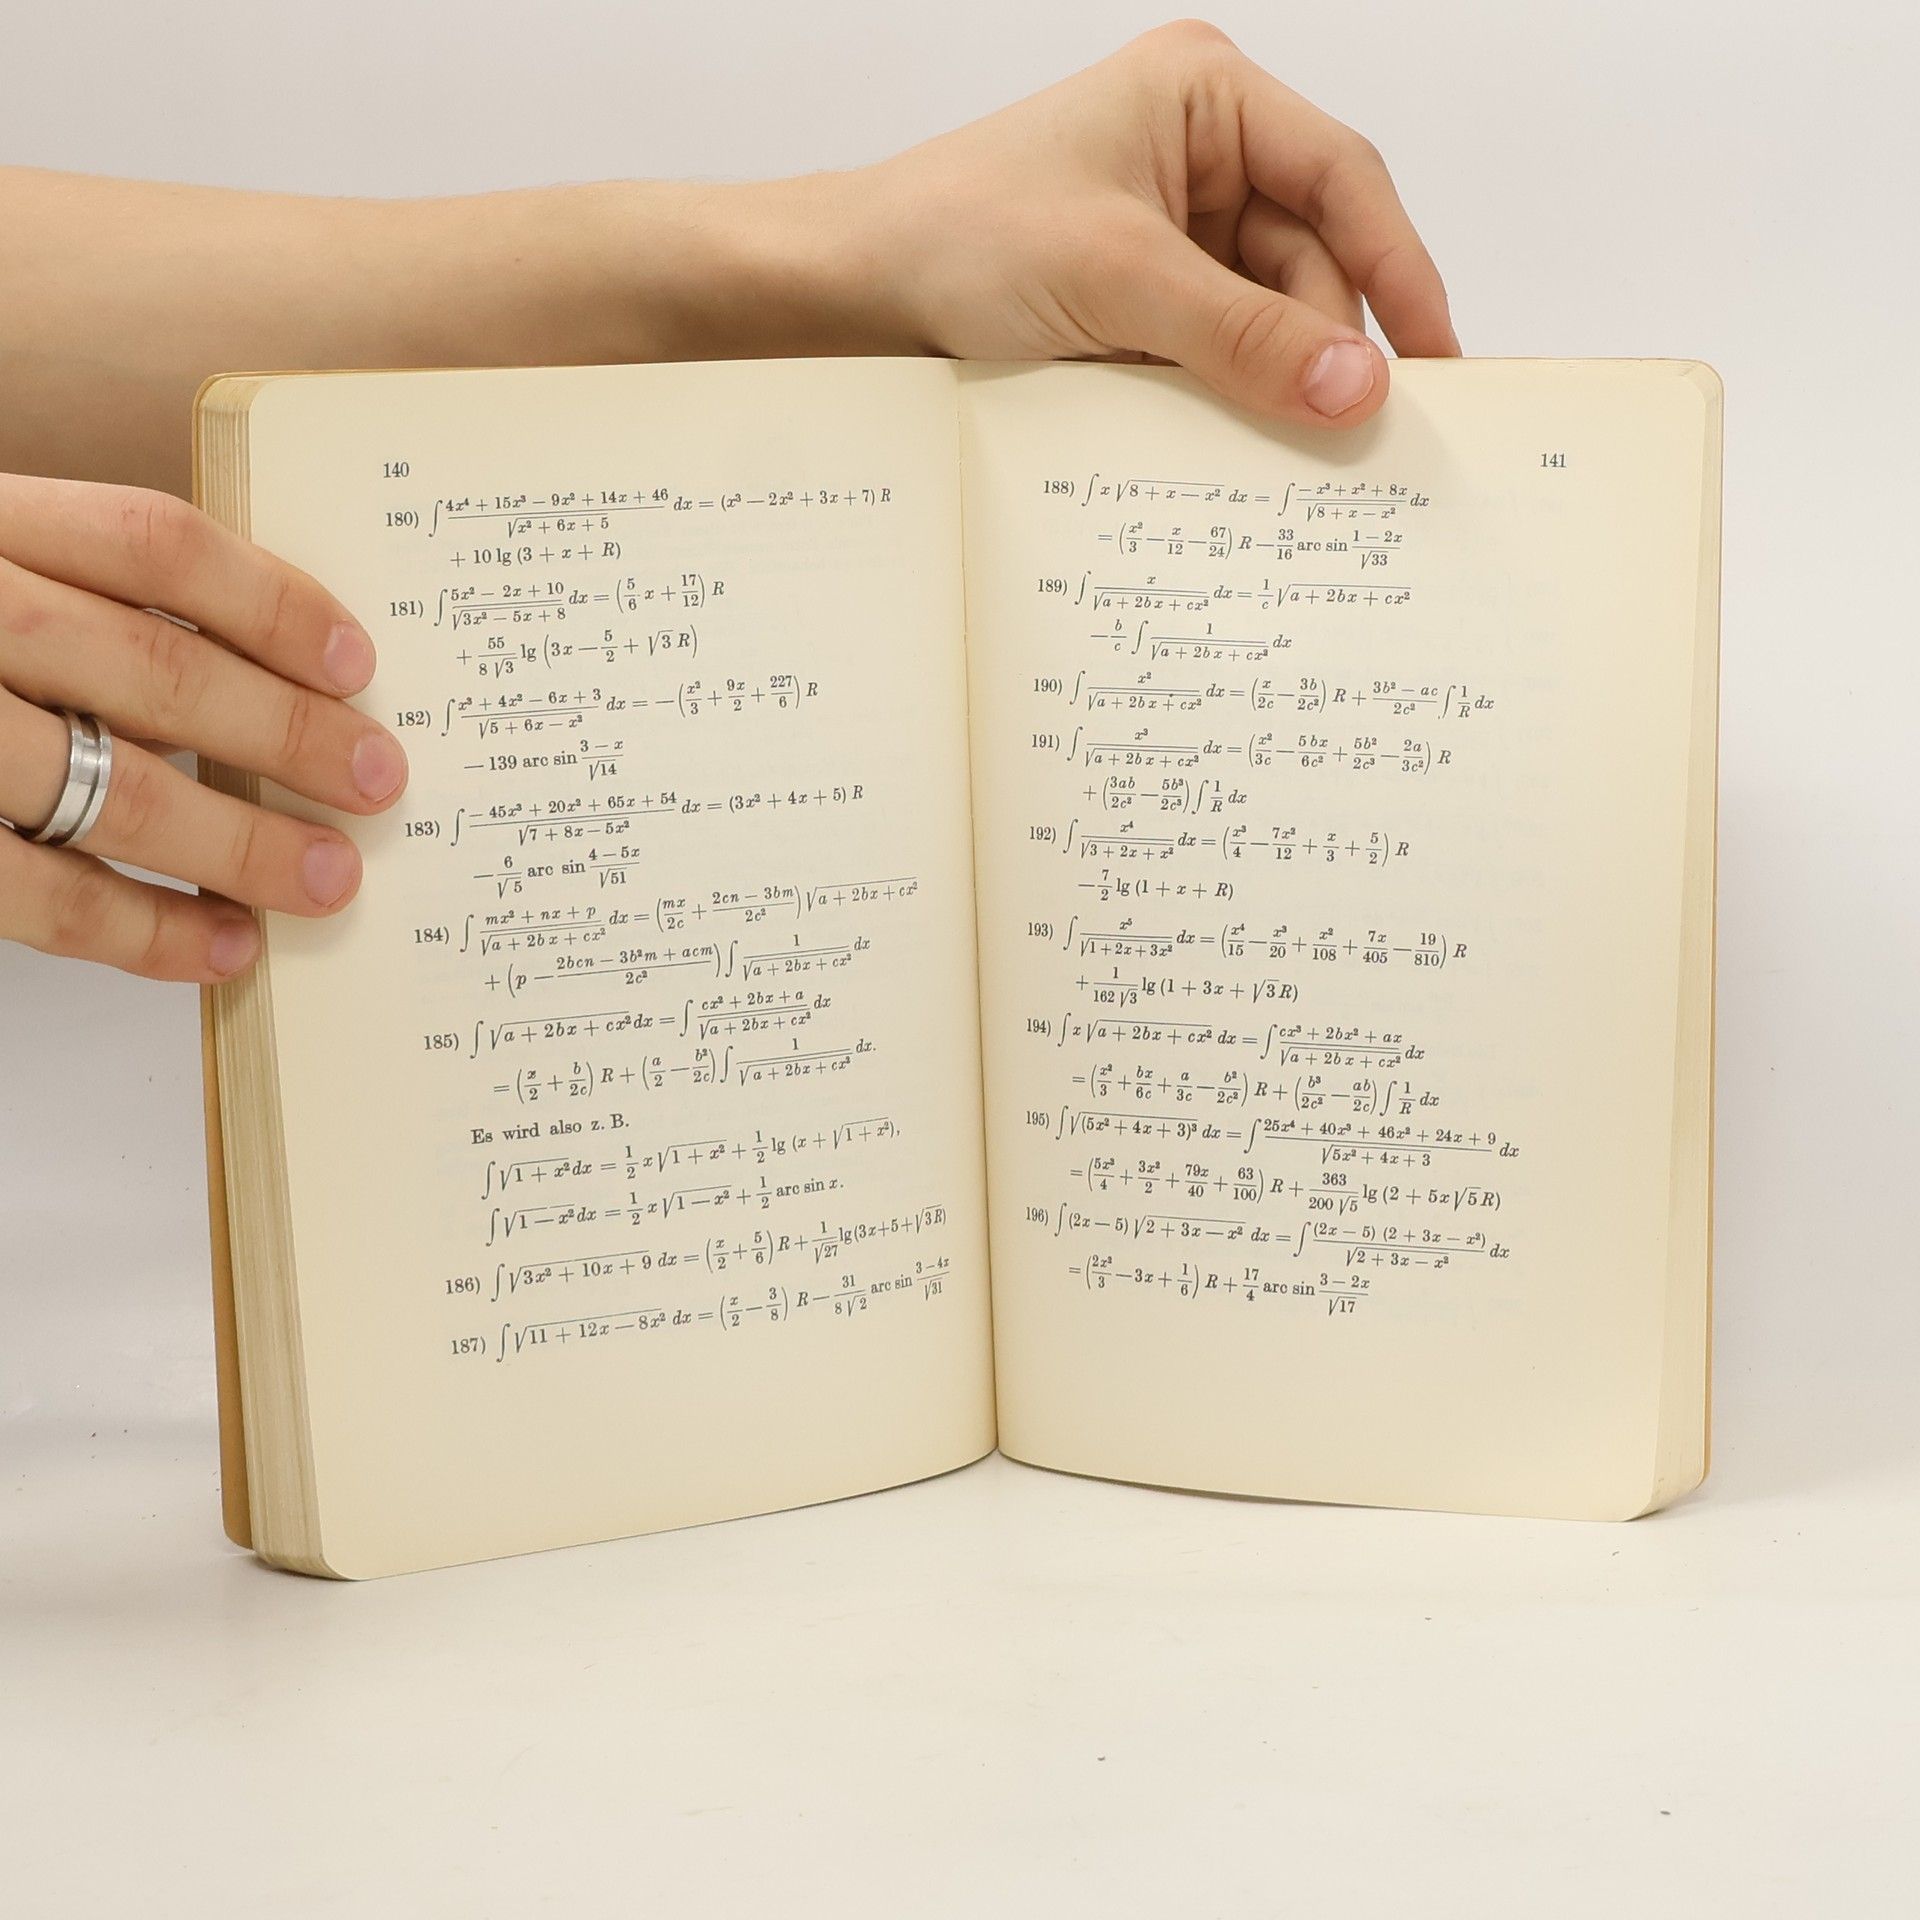 140
180) ∫ (4x⁴ + 15x³ − 9x² + 14x + 46)/√(x² + 6x + 5) dx = (x³ − 2x² + 3x + 7) R
+ 10 lg (3 + x + R)
181) ∫ (5x² − 2x + 10)/√(3x² − 5x + 8) dx = (5/6 x + 17/12) R
+ 55/(8√3) lg (3x − 5/2 + √3 R)
182) ∫ (x³ + 4x² − 6x + 3)/√(5 + 6x − x²) dx = −(x²/3 + 9x/2 + 227/6) R
− 139 arc sin (3 − x)/√14
183) ∫ (− 45x³ + 20x² + 65x + 54)/√(7 + 8x − 5x²) dx = (3x² + 4x + 5) R
− 6/√5 arc sin (4 − 5x)/√51
184) ∫ (mx² + nx + p)/√(a + 2bx + cx²) dx = (mx/2c + (2cn − 3bm)/2c²) √(a + 2bx + cx²)
+ (p − (2bcn − 3b²m + acm)/2c²) ∫ 1/√(a + 2bx + cx²) dx
185) ∫ √(a + 2bx + cx²) dx = ∫ (cx² + 2bx + a)/√(a + 2bx + cx²) dx
= (x/2 + b/2c) R + (a/2 − b²/2c) ∫ 1/√(a + 2bx + cx²) dx.
Es wird also z. B.
∫ √(1 + x²) dx = 1/2 x √(1 + x²) + 1/2 lg (x + √(1 + x²)),
∫ √(1 − x²) dx = 1/2 x √(1 − x²) + 1/2 arc sin x.
186) ∫ √(3x² + 10x + 9) dx = (x/2 + 5/6) R + 1/√27 lg (3x + 5 + √(3R))
187) ∫ √(11 + 12x − 8x²) dx = (x/2 − 3/8) R − 31/(8√2) arc sin (3 − 4x)/√31
141
188) ∫ x √(8 + x − x²) dx = ∫ (− x³ + x² + 8x)/√(8 + x − x²) dx
= (x²/3 − x/12 − 67/24) R − 33/16 arc sin (1 − 2x)/√33
189) ∫ x/√(a + 2bx + cx²) dx = 1/c √(a + 2bx + cx²)
− b/c ∫ 1/√(a + 2bx + cx²) dx
190) ∫ x²/√(a + 2bx + cx²) dx = (x/2c − 3b/2c²) R + (3b² − ac)/2c² ∫ 1/R dx
191) ∫ x³/√(a + 2bx + cx²) dx = (x²/3c − 5bx/6c² + 5b²/2c³ − 2a/3c²) R
+ (3ab/2c² − 5b³/2c³) ∫ 1/R dx
192) ∫ x⁴/√(3 + 2x + x²) dx = (x³/4 − 7x²/12 + x/3 + 5/2) R
− 7/2 lg (1 + x + R)
193) ∫ x⁵/√(1 + 2x + 3x²) dx = (x⁴/15 − x³/20 + x²/108 + 7x/405 − 19/810) R
+ 1/(162√3) lg (1 + 3x + √3 R)
194) ∫ x √(a + 2bx + cx²) dx = ∫ (cx³ + 2bx² + ax)/√(a + 2bx + cx²) dx
= (x²/3 + bx/6c + a/3c − b²/2c²) R + (b³/2c² − ab/2c) ∫ 1/R dx
195) ∫ √(5x² + 4x + 3)³ dx = ∫ (25x⁴ + 40x³ + 46x² + 24x + 9)/√(5x² + 4x + 3) dx
= (5x³/4 + 3x²/2 + 79x/40 + 63/100) R + 363/(200√5) lg (2 + 5x √5 R)
196) ∫ (2x − 5) √(2 + 3x − x²) dx = ∫ (2x − 5) (2 + 3x − x²)/√(2 + 3x − x²) dx
= (2x²/3 − 3x + 1/6) R + 17/4 arc sin (3 − 2x)/√17